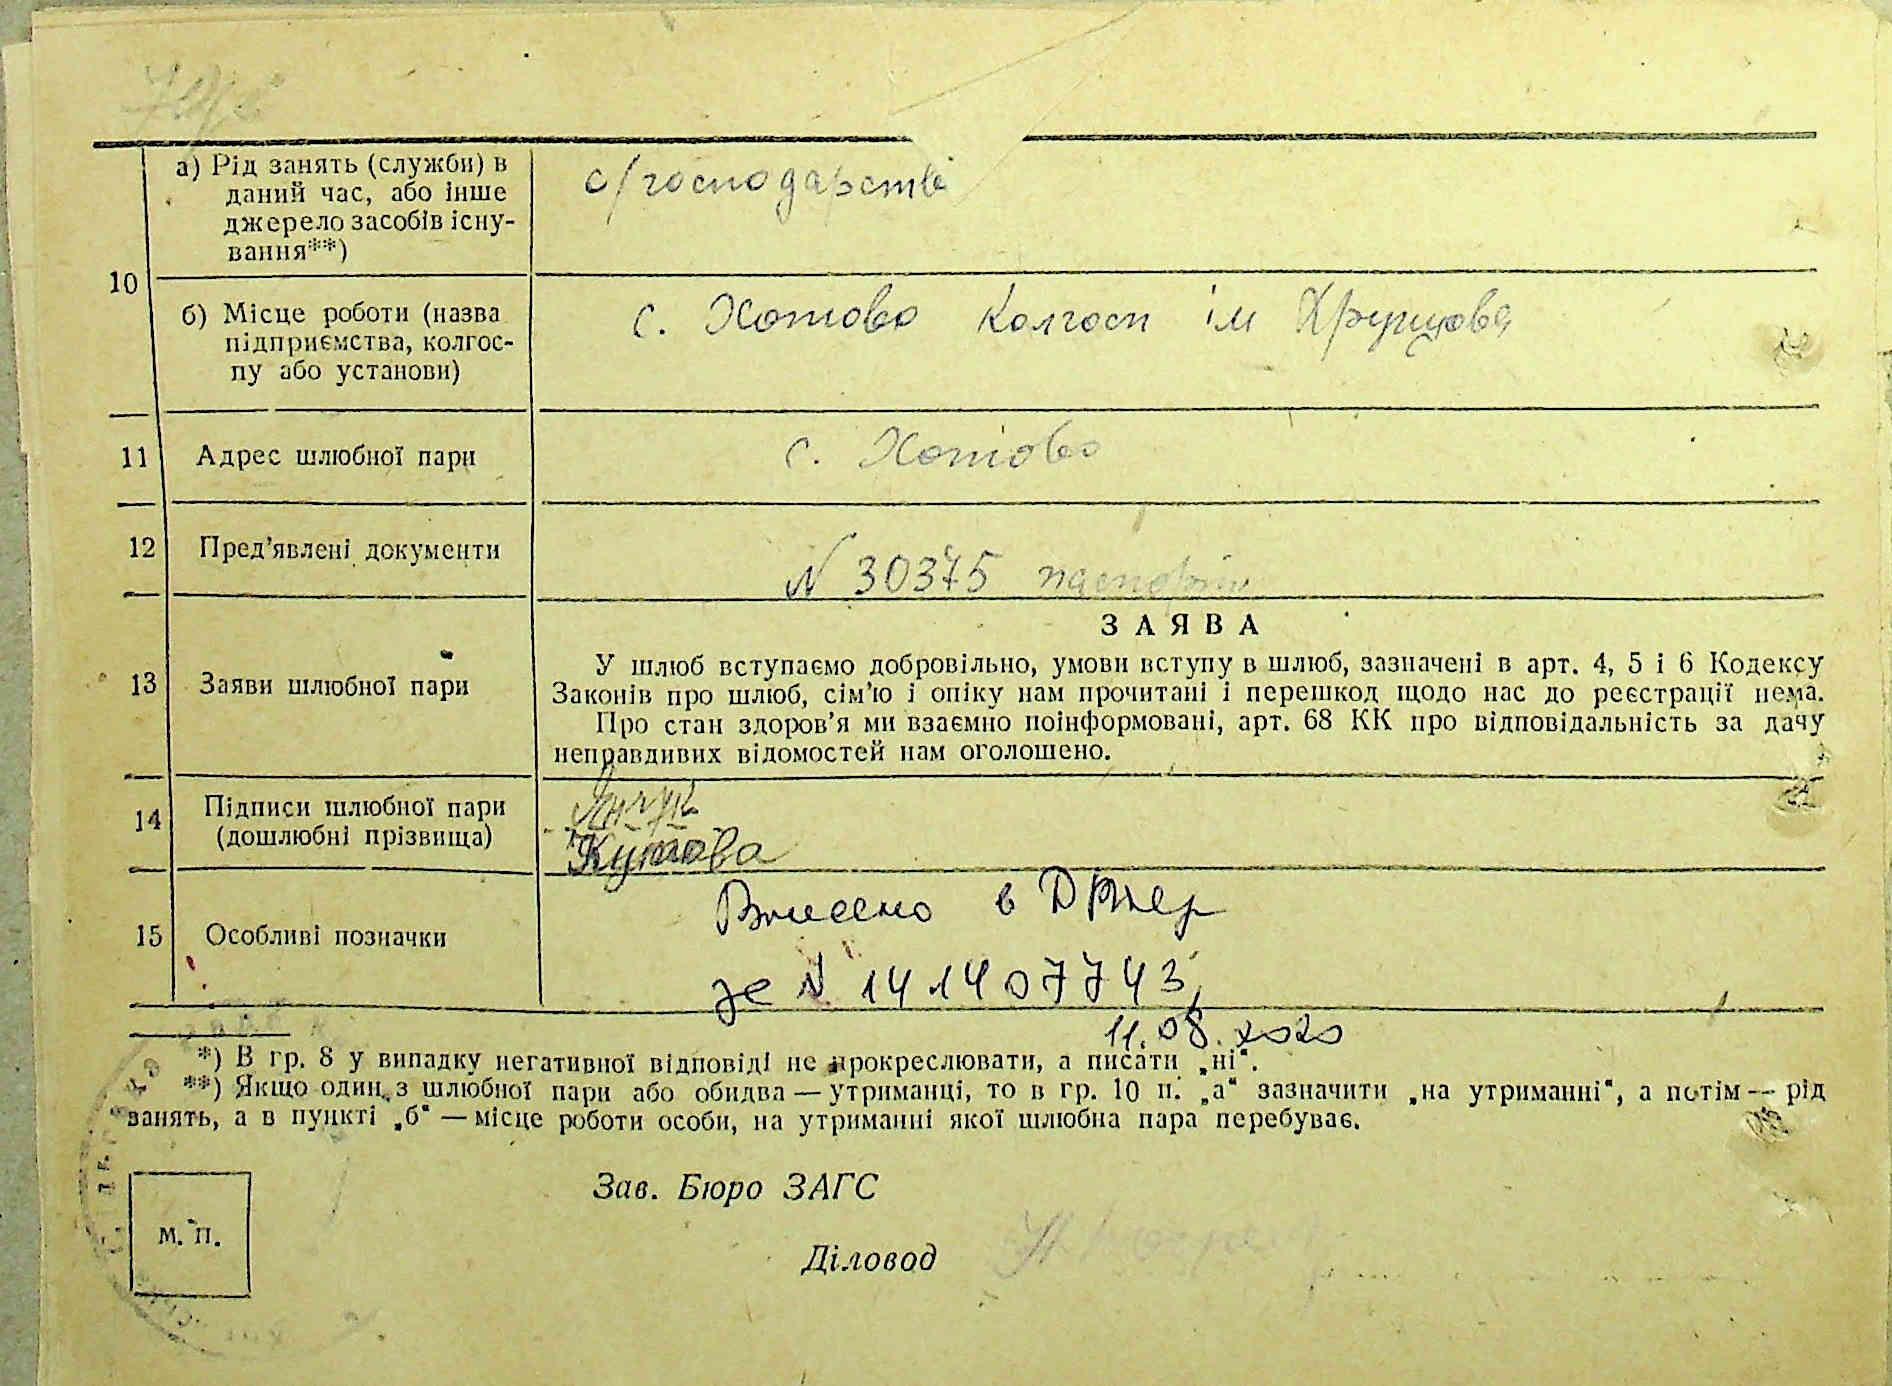 а) Рід занять (служби) в
даний час, або інше
джерело засобів існу-
вання**)
с/господарстві
10
б) Місце роботи (назва
підприємства, колгос-
пу або установи)
с. Хотово колгосп ім Хрущова
11 Адрес шлюбної пари
с. Хотово
12 Пред'явлені документи
N 30375 паспорт
ЗАЯВА
13 Заяви шлюбної пари
У шлюб вступаємо добровільно, умови вступу в шлюб, зазначені в арт. 4, 5 і 6 Кодексу
Законів про шлюб, сім'ю і опіку нам прочитані і перешкод щодо нас до реєстрації нема.
Про стан здоров'я ми взаємно поінформовані, арт. 68 КК про відповідальність за дачу
неправдивих відомостей нам оголошено.
14 Підписи шлюбної пари
(дошлюбні прізвища)
15 Особливі позначки
Внесено в
за N 141407743,
11.08.2020
*) В гр. 8 у випадку негативної відповіді не прокреслювати, а писати „ні“.
**) Якщо один з шлюбної пари або обидва — утриманці, то в гр. 10 п. „а“ зазначити „на утриманні“, а потім — рід
занять, а в пункті „б“ — місце роботи особи, на утриманні якої шлюбна пара перебуває.
Зав. Бюро ЗАГС
М. П.
Діловод